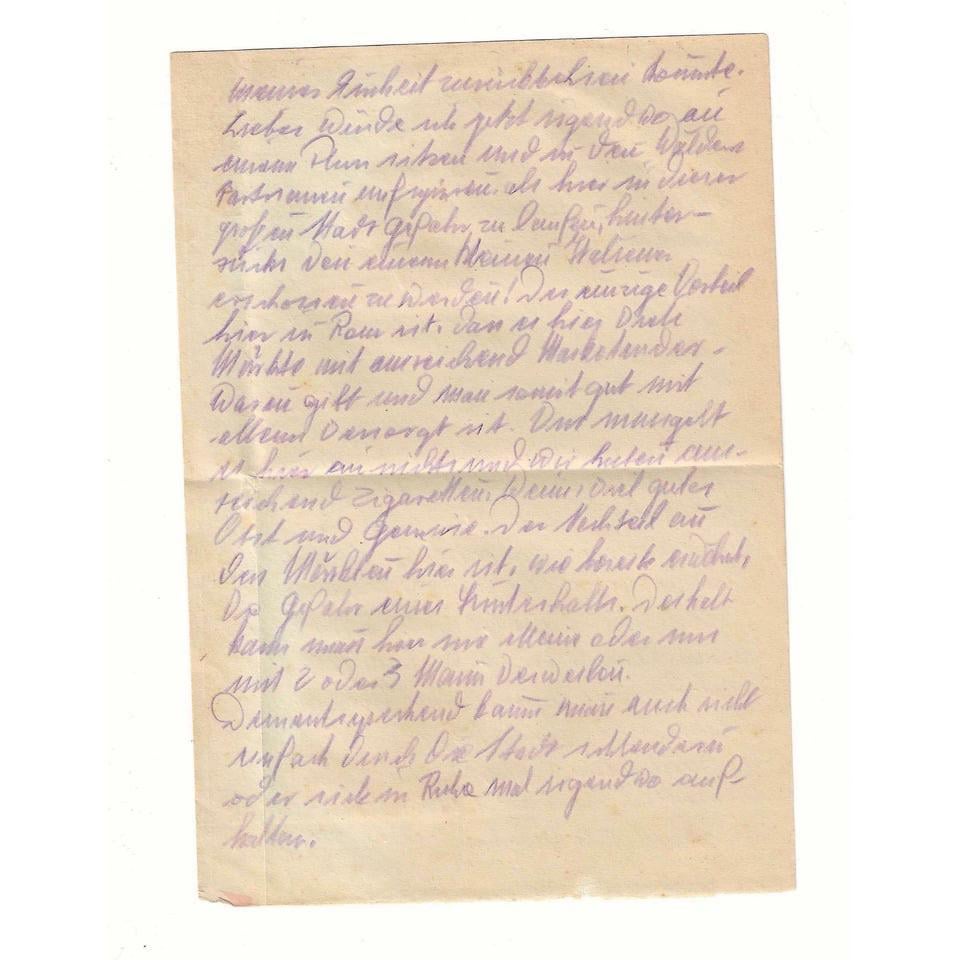 meiner Einheit zurückkehren konnte.
Lieber würde ich jetzt irgendwo an
einem Fluss sitzen und in den Wäldern
Partisanen aufspüren als hier in dieser
großen Stadt Gefahr zu laufen, hinter-
rücks von einem kleinen Italiener
erschossen zu werden! Der einzige Vorteil
hier in Rom ist, dass es hier viele
Märkte mit ausreichend Marketender-
waren gibt und man somit gut mit
allem versorgt ist. Uns mangelt
es hier an nichts und wir haben aus-
reichend Zigaretten, Wein, viel gutes
Obst und Gemüse. Der Nachteil an
den Märkten hier ist, wie bereits erwähnt,
die Gefahr eines Hinterhalts. Deshalb
kann man hier nie alleine oder nur
mit 2 oder 3 Mann verweilen.
Dementsprechend kann man auch nicht
einfach durch die Stadt schlendern
oder sich in Ruhe mal irgendwo auf-
halten.